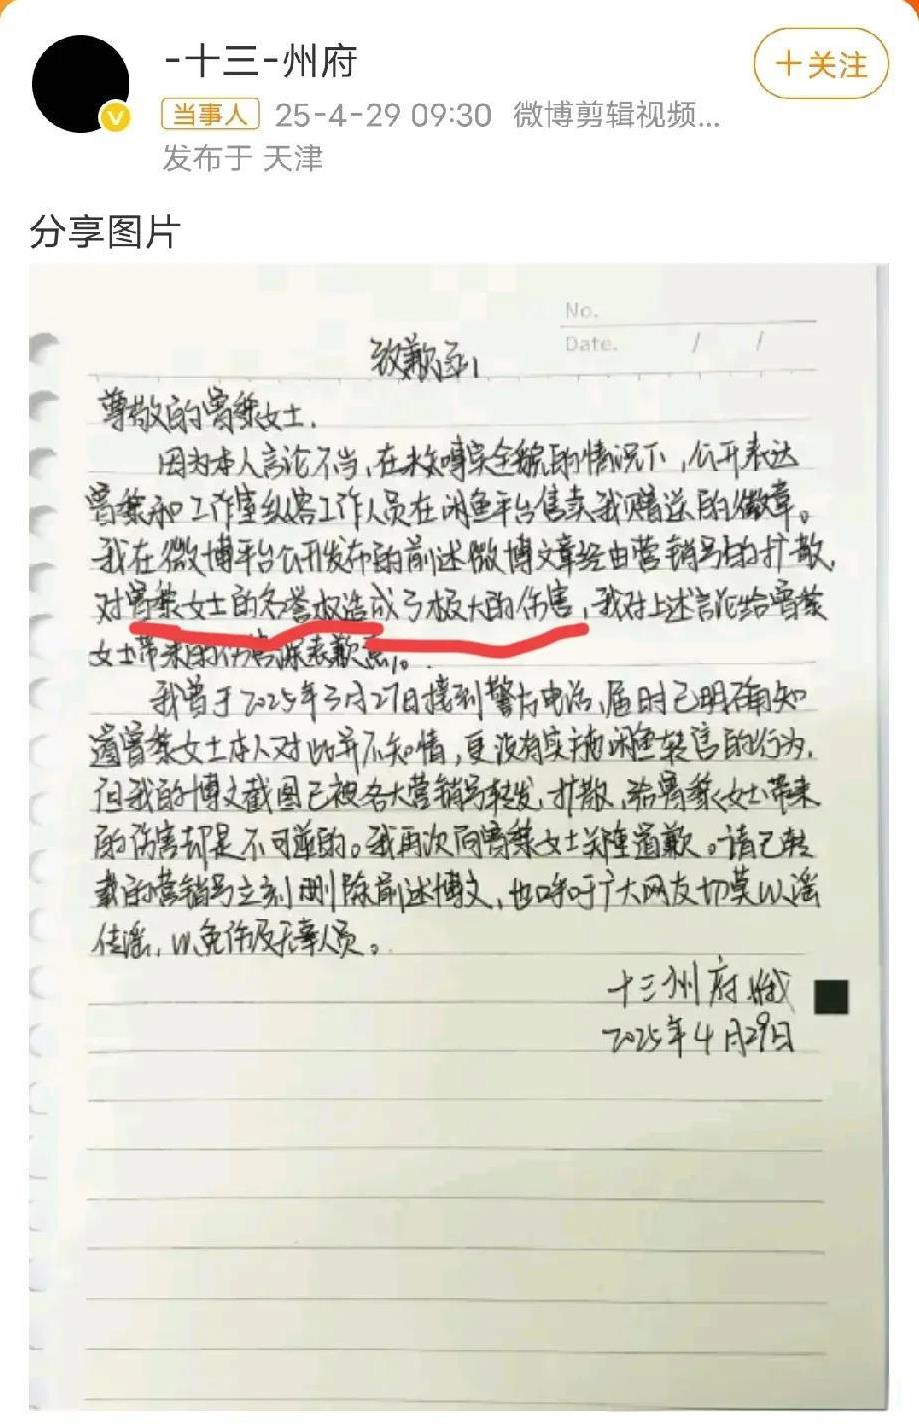 -十三-州府
+关注
当事人 25-4-29 09:30 微博剪辑视频...
发布于 天津
分享图片
No.
Date. / /
致歉函
尊敬的曾黎女士.
因为本人言论不当,在未知事实全貌的情况下,公开表达
曾黎和工作室纵容工作人员在闲鱼平台售卖我赠送的徽章。
我在微博平台公开发布的前述微博文章经由营销号的扩散,
对曾黎女士的名誉权造成了极大的伤害,我对上述言论给曾黎
女士带来的伤害深表歉意。
我曾于2025年3月27日接到警方电话,届时已明确知
道曾黎女士本人对此并不知情,更没有实施闲鱼转售的行为,
但我的博文截图已被各大营销号转发,扩散,给曾黎女士带来
的伤害却是不可逆的。我再次向曾黎女士郑重道歉。请已转
载的营销号立刻删除前述博文,也呼吁广大网友切莫以谣
传谣,以免伤及无辜人员。
十三州府
2025年4月29日